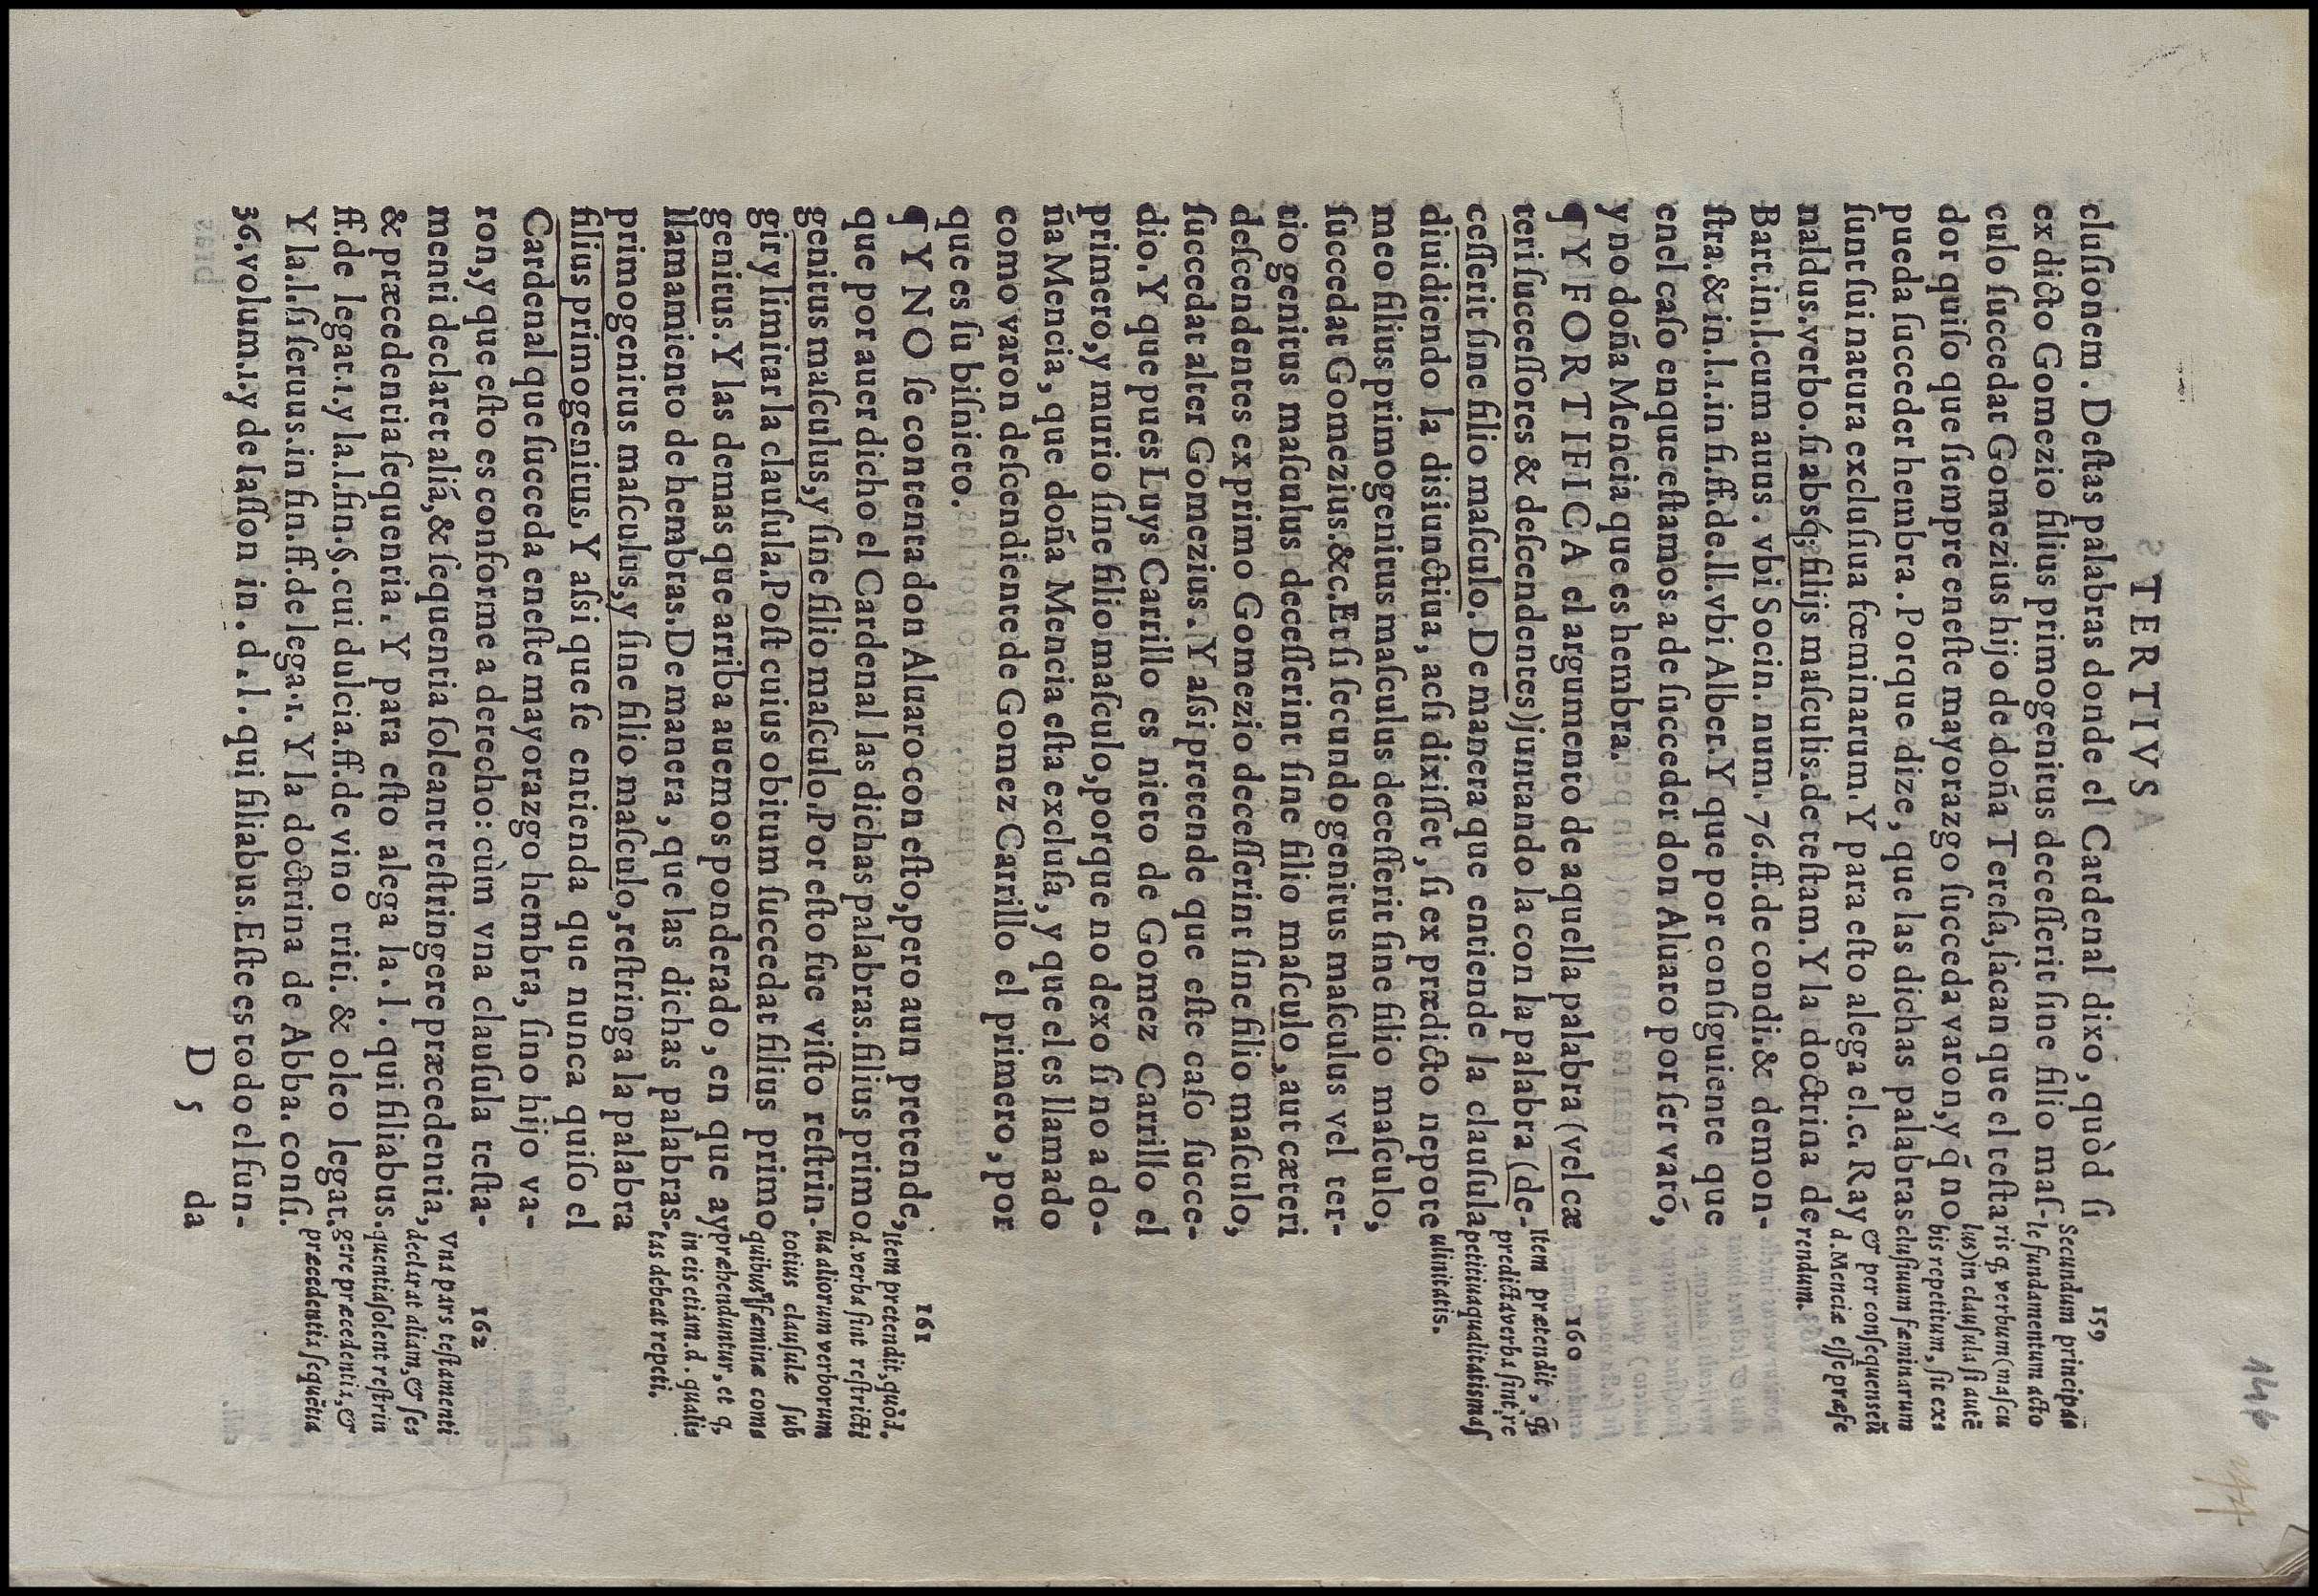 TERTIVS
clusionem. Destas palabras donde el Cardenal dixo, quòd si
ex dicto Gomezio filius primogenitus decesserit sine filio mas-
culo succedat Gomezius hijo de doña Teresa, sacan que el testa
dor quiso que siempre eneste mayorazgo succeda varon, y q̃ no
pueda succeder hembra. Porque dize, que las dichas palabras
sunt sui natura exclusiua fœminarum. Y para esto alega el.c. Ray
naldus.verbo.si absq; filijs masculis.de testam. Y la doctrina de
Bart.in.l.cum auus. vbi Socin. num. 76.ff.de condi.& demon-
stra.& in.l.1.in fi.ff.de.ll.vbi Alber. Y que por consiguiente que
enel caso enque estamos a de succeder don Aluaro por ser varó,
y no doña Mencia que es hembra.
¶ Y FORTIFICA el argumento de aquella palabra (vel cæ
teri successores & descendentes) juntando la con la palabra (de-
cesserit sine filio masculo. De manera que entiende la clausula
diuidiendo la disiunctiua, acsi dixisset, si ex prædicto nepote
meo filius primogenitus masculus decesserit sine filio masculo,
succedat Gomezius.&c. Et si secundo genitus masculus vel ter-
tio genitus masculus decesserint sine filio masculo, aut cæteri
descendentes ex primo Gomezio decesserint sine filio masculo,
succedat alter Gomezius. Y assi pretende que este caso succe-
dio. Y que pues Luys Carrillo es nieto de Gomez Carrillo el
primero, y murio sine filio masculo, porque no dexo si no a do-
ña Mencia, que doña Mencia esta exclusa, y que el es llamado
como varon descendiente de Gomez Carrillo el primero, por
que es su bisnieto.
¶ Y NO se contenta don Aluaro con esto, pero aun pretende,
que por auer dicho el Cardenal las dichas palabras. filius primo
genitus masculus, y sine filio masculo. Por esto fue visto restrin-
gir y limitar la clausula. Post cuius obitum succedat filius primo
genitus. Y las demas que arriba auemos ponderado, en que ay
llamamiento de hembras. De manera, que las dichas palabras.
primogenitus masculus, y sine filio masculo, restringa la palabra
filius primogenitus. Y assi que se entienda que nunca quiso el
Cardenal que succeda eneste mayorazgo hembra, sino hijo va-
ron, y que esto es conforme a derecho: cùm vna clausula testa-
menti declaret aliá, & sequentia soleant restringere præcedentia,
& præcedentia sequentia. Y para esto alega la. l. qui filiabus.
ff.de legat.1.y la.l.fin.§.cui dulcia.ff.de vino triti. & oleo legat.
Y la.l.si seruus.in fin.ff.de lega.1. Y la doctrina de Abba. consi.
36.volum.1.y de Iasson in. d. l. qui filiabus. Este es todo el fun-
D 5 da
159
Secundum principaa
le fundamentum acto
ris q; verbum (mascu
lus) in clausula si autē
bis repetitum, sit exa
clusiuum fœminarum
& per consequens cū
d. Menciæ esse præfe
rendum.
160
Item prætendit, q̃
prædicta verba sint re
petitiua qualitatis mas
ulinitatis.
161
Item pretendit, quòd.
d. verba sint restricti
ua aliorum verborum
totius clausulæ sub
quibus fœminæ coma
præhenduntur, et q,
in eis etiam. d. qualia
tas debeat repeti.
162
Vna pars testamenti
declarat aliam, & sea
quentia solent restrin
gere præcedentia, &
præcedentia sequētia